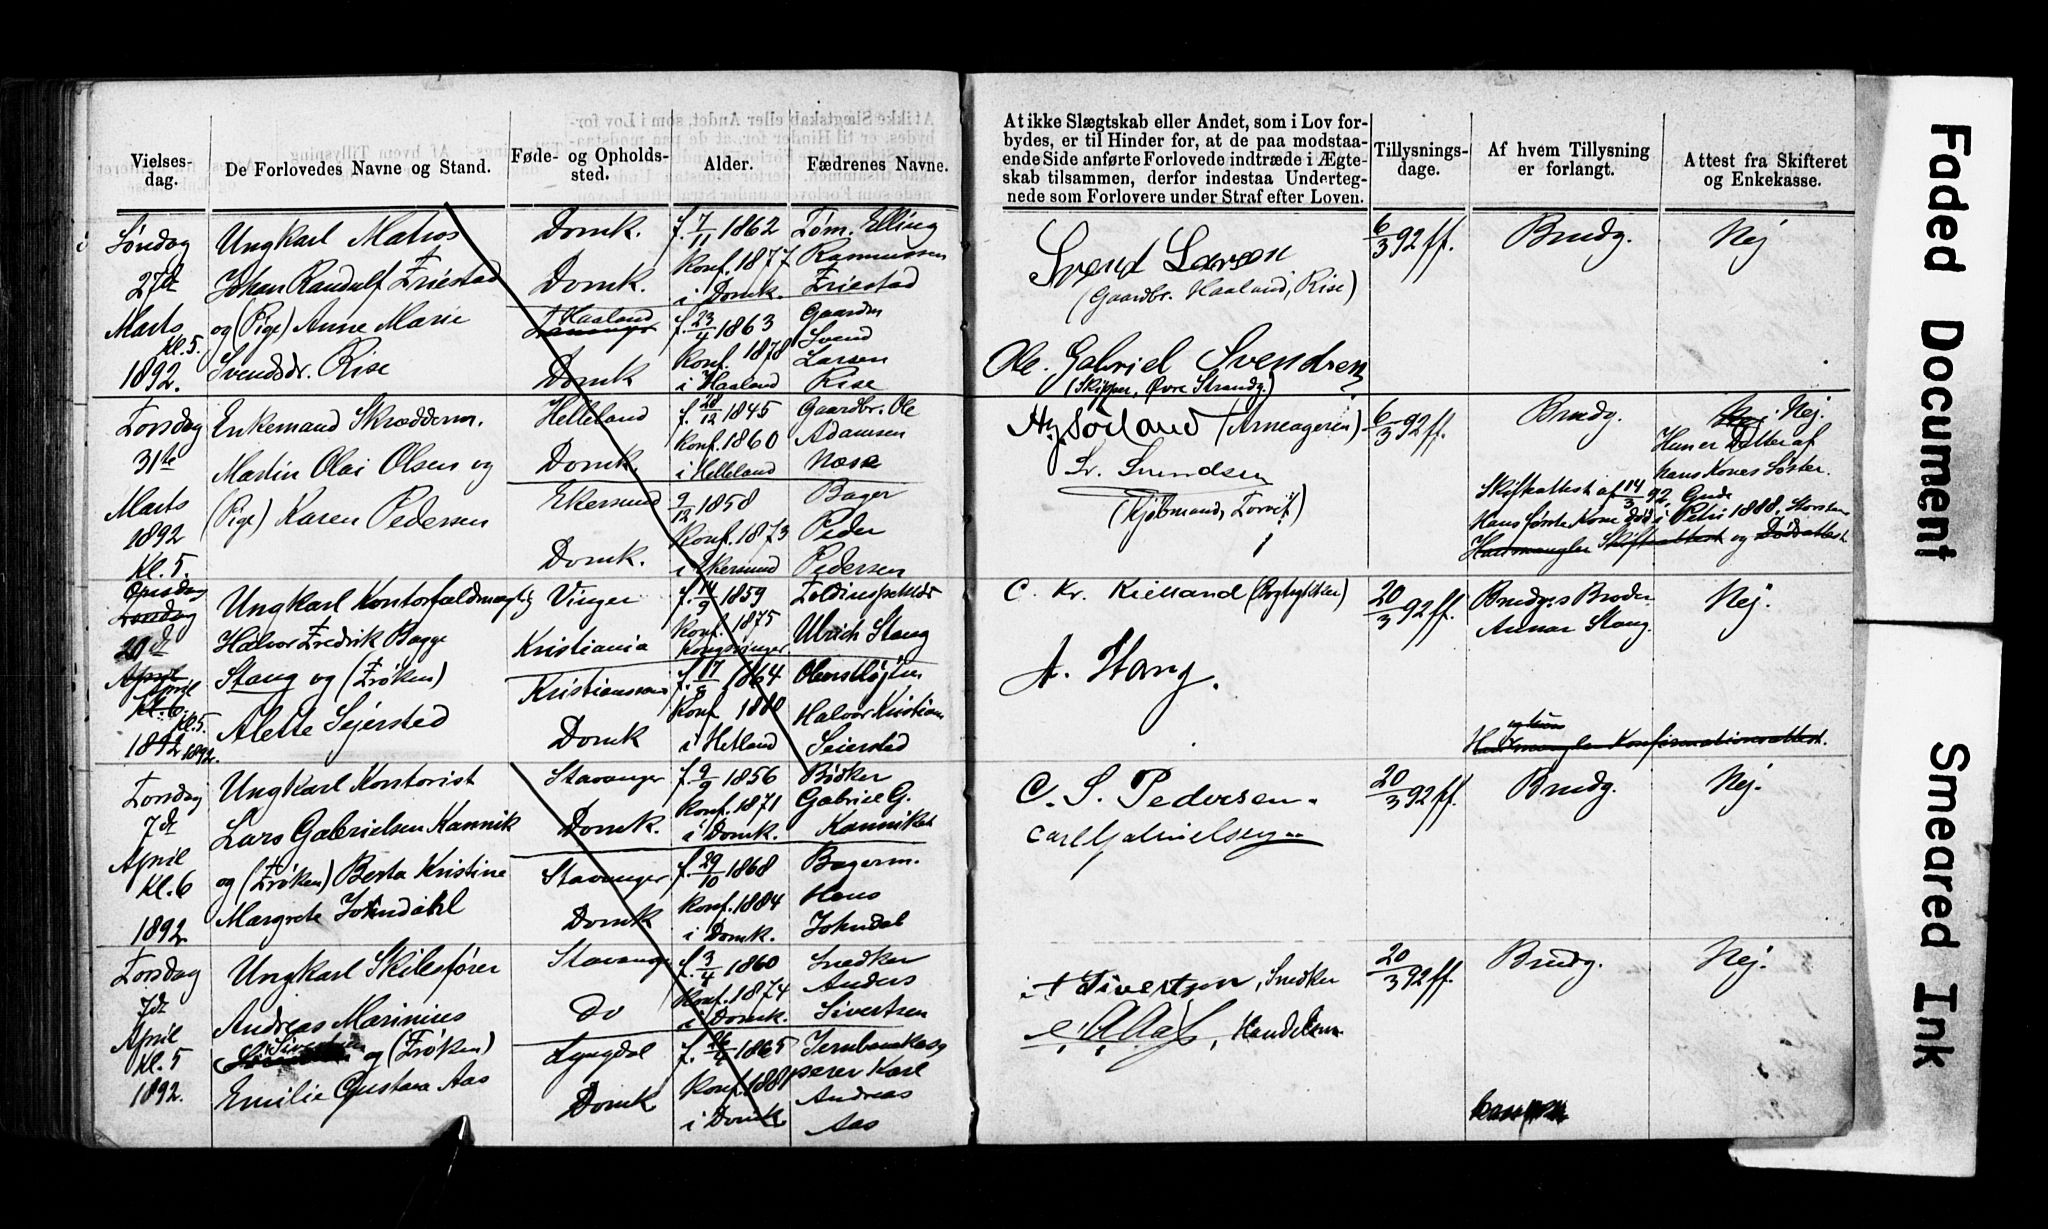 Vielses-
dag.
De Forlovedes Navne og Stand.
Føde- og Opholds-
sted.
Alder.
Fædrenes Navne.
Søndag
27de
Marts
Kl. 5.
1892.
Ungkarl Matros
Johan Randulf Friestad
og (Pige) Anne Marie
Svendsdr. Rise
Domk.
Domk.
Haaland
Domk
f. 7/11 1862
Konf. 1877
i Domk.
f. 23/4 1863
Konf. 1878
i Haaland
Tøm. Elling
Rasmussen
Friestad
Gaardm
Svend
Larsen
Rise
Torsdag
31te
Marts
1892
Kl. 5.
Enkemand Skræddern.
Martin Olai Olsen og
(Pige) Karen Pedersen
Helleland
Domk.
Ekersund
Domk.
f. 28/12 1845
Konf. 1860
i Helleland
9/12 1858
Konf. 1873
i Ekersund
Gaardbr. Ole
Adamsen
Næse
Bager
Peder
Pedersen
Onsdag
Torsdag
20de
April
April
Kl. 6.
Kl. 5.
1892 1892.
Ungkarl Kontorfuldmægtig
Halvor Fredrik Bagge
Stang og (Frøken)
Alette Sejersted
Vinger
Kristiania
Kristianssand
Domk
f. 14/9 1859
Konf. 1875
Kongsvinger
f. 17/8 1864
Konf 1880
i Hetland
Toldinspektør
Ulrich Stang
Oberstløjtn
Halvor Kristian
Seiersted
Torsdag
7de
April
Kl. 6
1892
Ungkarl Kontorist
Lars Gabrielsen Kannik
og (Frøken) Berta Kristine
Margrete Johndahl
Stavanger
Domk.
Stavanger
Domk
f. 9/9 1856
Konf. 1871
i Domk.
f. 29/10 1868
Konf. 1884
i Domk.
Bødker
Gabriel G.
Kannik
Bagerm.
Hans
Johndal
Torsdag
7de
April
Kl. 5
1892.
Ungkarl Skibsfører
Andreas Marinius
Sivertsen
og (Frøken)
Emilie Gustava Aas
Stavanger
Do
Lyngdal
Domk
f. 3/4 1860
Konf. 1874
i Domk.
f. 26/4 1865
Konf. 1881
i Domk
Snedker
Anders
Sivertsen
Jernbaneklasg
perer Karl
Andreas
Aas
At ikke Slægtskab eller Andet, som i Lov for-
bydes, er til Hinder for, at de paa modstaa-
ende Side anførte Forlovede indtræde i Ægte-
skab tilsammen, derfor indestaa Underteg-
nede som Forlovere under Straf efter Loven.
Tillysnings-
dage.
Af hvem Tillysning
er forlangt.
Attest fra Skifteret
og Enkekasse.
Svend Larsen
(Gaardbr. Haaland, Rise)
Ole Gabriel Svendsen
(Skipper, Øvre Strandg.)
6/3 92 ff.
Brudg.
Nej
Sørland (Arneageren)
Sv. Svendsen
(Kjøbmand, Torvet)
6/3 92 ff.
Brudg.
Nej.
Hun er Datter af
hans Kones Søster.
Skifteattest af 14/3 92.
Hans første Kone død i Petri 1888.
Han mangler Skifteattest og Dødsattest
C. Kr. Kielland
A. Stang.
20/3 92 ff.
Brudg.s Broder
Annar Stang.
Nej.
og hun
Han mangler Konfirmationsattest.
C. S. Pedersen.
Carl Gabrielsen
20/3 92 ff.
Brudg.
Nej.
A Sivertsen, Snedker
Aas, Handelsm
20/3 92 ff.
Brudg.
Nej.
Faded Document
Smeared Ink